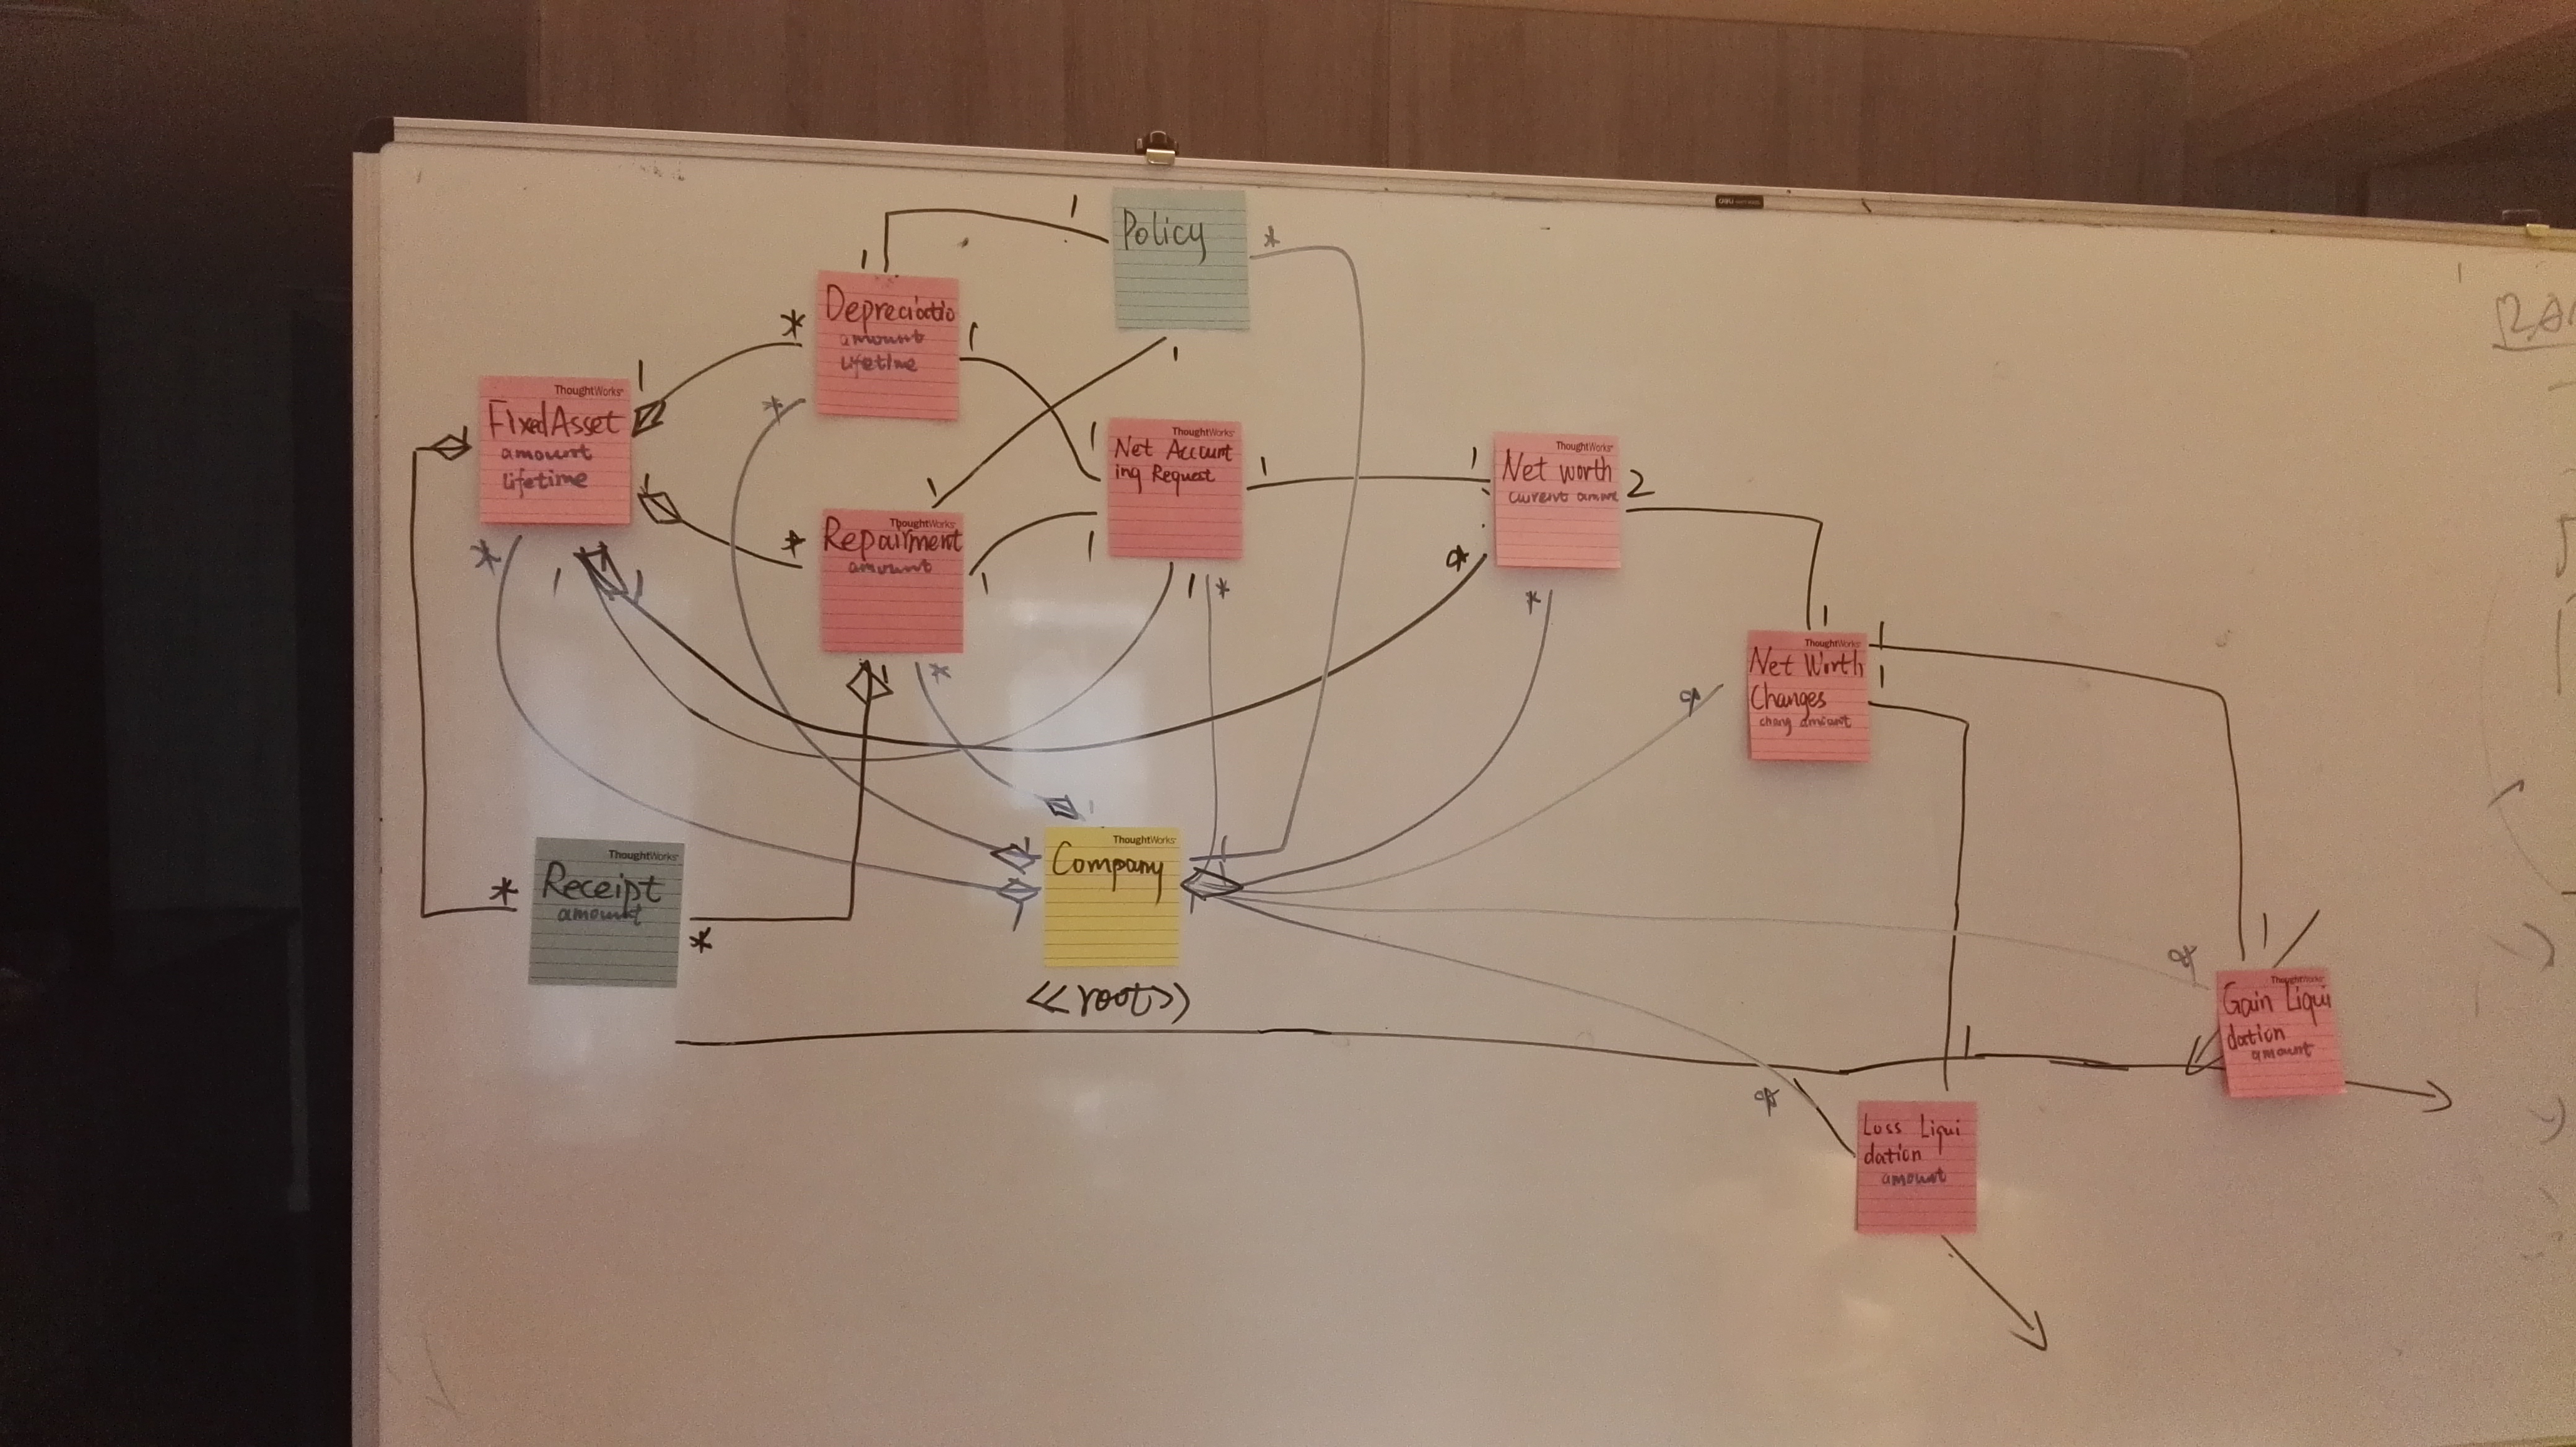 Policy
Depreciatio
amount
lifetime
ThoughtWorks
FixedAsset
amount
lifetime
ThoughtWorks
Net Account
ing Request
ThoughtWorks
Net worth
current
2
ThoughtWorks
Repairment
amount
ThoughtWorks
Net Worth
Changes
chang amount
ThoughtWorks
Receipt
amount
ThoughtWorks
Company
<<root>>
ThoughtWorks
Gain Liqui
dation
amount
Loss Liqui
dation
amount